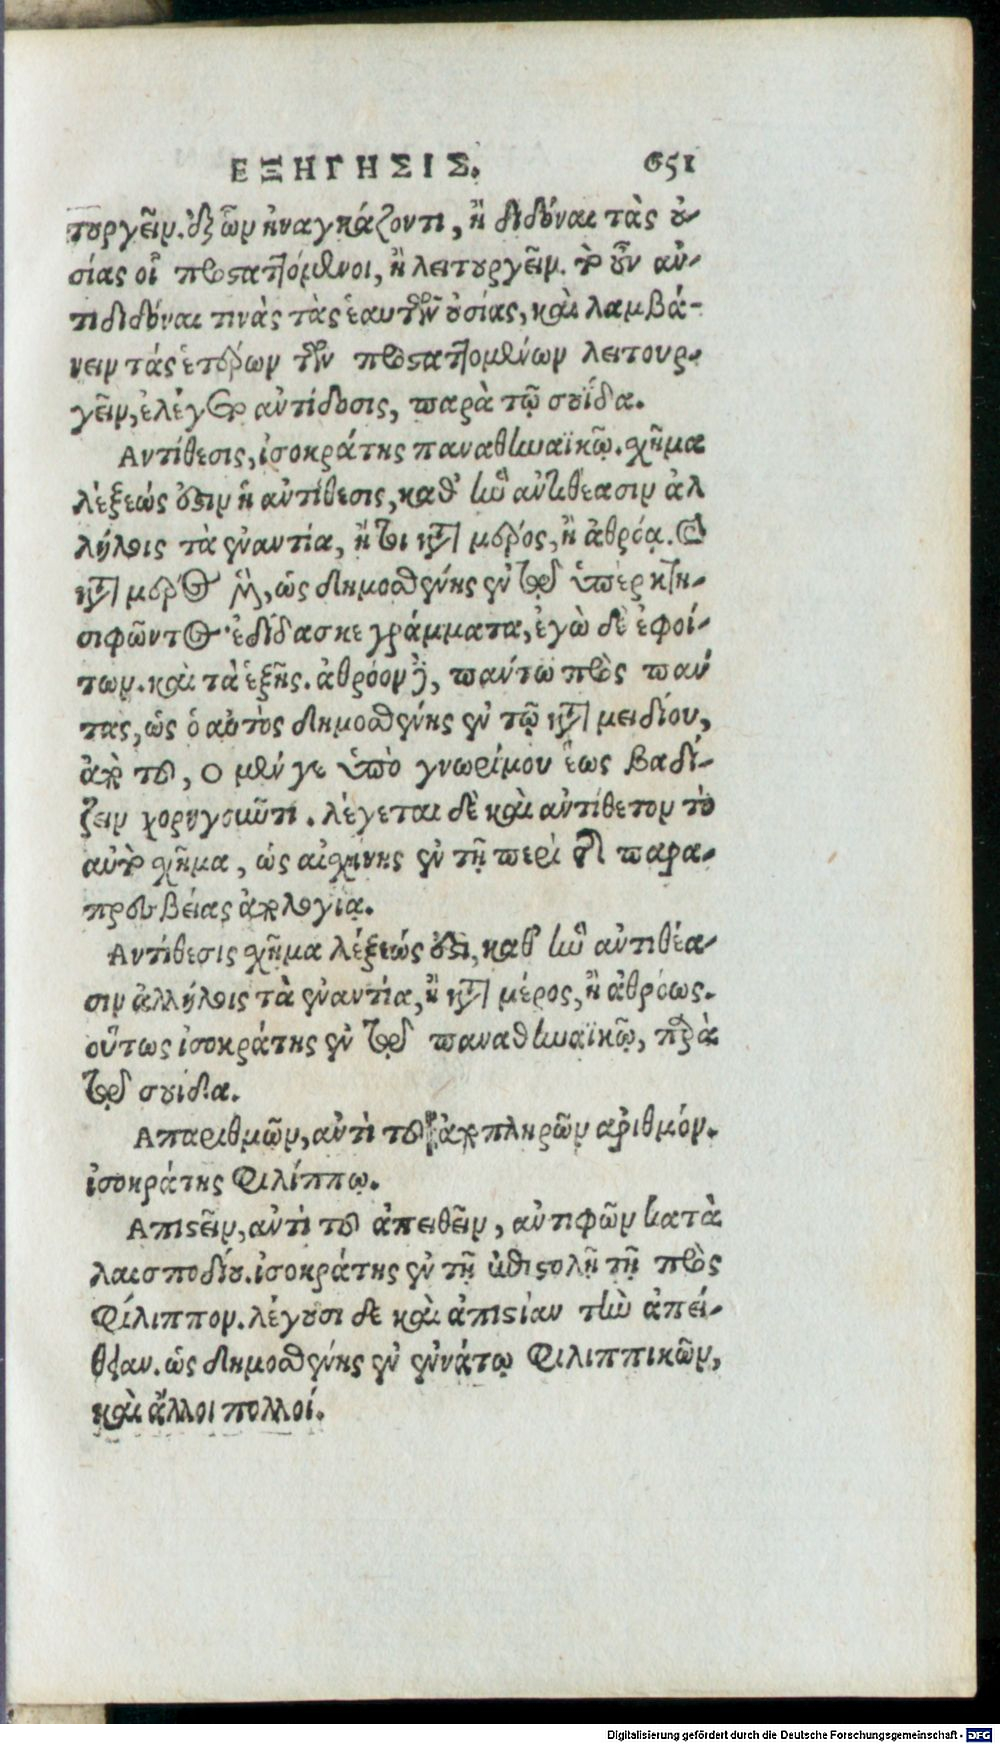 ΕΞΗΓΗΣΙΣ. 651
τουργεῖν. ἐξ ὧν ἠναγκάζοντι, ἢ διδόναι τὰς οὐ-
σίας οἱ προσταττόμενοι, ἢ λειτουργεῖν. τὸ οὖν ἀν-
τιδιδόναι τινὰς τὰς ἑαυτῶν οὐσίας, καὶ λαμβά-
νειν τάς ἑτέρων τῶν προσταττομένων λειτουρ-
γεῖν, ἐλέγετο ἀντίδοσις, παρὰ τῷ σουΐδα.
Αντίθεσις, ἰσοκράτης παναθηναϊκῷ. χῆμα
λέξεώς ἐστιν ἡ ἀντίθεσις, καθ’ ἣν ἀντιθέασιν ἀλ
λήλοις τὰ ἐναντία, ἤτοι κατὰ μέρος, ἢ ἀθρόα.
κατὰ μέρος μὲν, ὡς δημοσθένης ἐν τῷ ὑπὲρ κτη-
σιφῶντος· ἐδίδασκε γράμματα, ἐγὼ δὲ ἐφοί-
των. καὶ τὰ ἑξῆς. ἀθρόον δὲ, πάντων πρὸς πάν
τας, ὡς ὁ αὐτὸς δημοσθένης ἐν τῷ κατὰ μειδίου,
ἀπὸ τοῦ, ο μέν γε ὑπὸ γνωρίμου ἕως βαδί-
ζειν χορηγοῦντι. λέγεται δὲ καὶ ἀντίθετον τὸ
αὐτὸ χῆμα, ὡς αἰχινης ἐν τῇ περὶ τῆς παρα-
πρεσβείας ἀπολογίᾳ.
Αντίθεσις χῆμα λέξεώς ἐστι, καθ’ ἣν ἀντιθέα-
σιν ἀλλήλοις τὰ ἐναντία, ἢ κατὰ μέρος, ἢ ἀθρόως.
οὕτως ἰσοκράτης ἐν τῷ παναθηναϊκῷ, παρὰ
τῷ σουιδα.
Απαριθμῶν, ἀντὶ τοῦ ἀποπληρῶν ἀριθμόν.
ἰσοκράτης Φιλίππῳ.
Απιστεῖν, ἀντὶ τοῦ ἀπειθεῖν, ἀντιφῶν κατὰ
λαισποδίου. ἰσοκράτης ἐν τῇ ἐπιστολῇ τῇ πρὸς
Φίλιππον. λέγουσι δε καὶ ἀπιστίαν τὴν ἀπεί-
θειαν. ὡς δημοσθένης ἐν ἐννάτῳ Φιλιππικῶν,
καὶ ἄλλοι πολλοί.
Digitalisierung gefördert durch die Deutsche Forschungsgemeinschaft - DFG